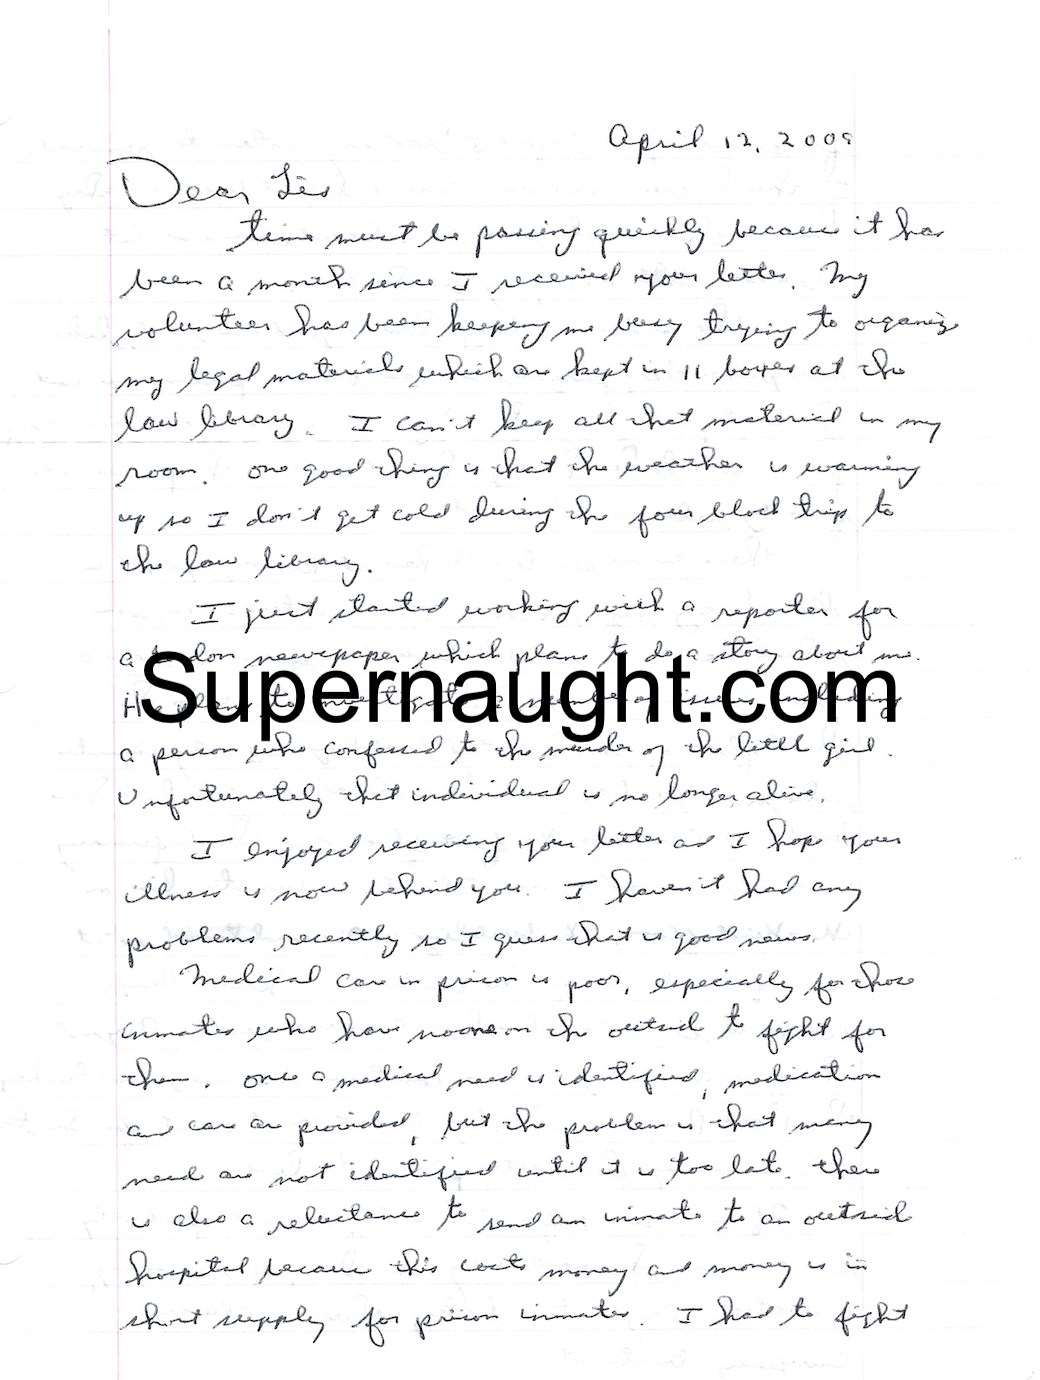 April 12, 2009
Dear Les
time must be passing quickly because it has
been a month since I received your letter. My
volunteer has been keeping me busy trying to organize
my legal materials which are kept in 11 boxes at the
law library. I can't keep all that material in my
room. one good thing is that the weather is warming
up so I don't get cold during the four block trip to
the law library.
I just started working with a reporter for
a London newspaper which plans to do a story about me.
He plans to investigate a number of issues including
Supernaught.com
a person who confessed to the murder of the little girl.
Unfortunately that individual is no longer alive.
I enjoyed receiving your letter and I hope your
illness is now behind you. I haven't had any
problems recently so I guess that is good news.
Medical care in prison is poor, especially for those
inmates who have noone on the outside to fight for
them. once a medical need is identified, medication
and care are provided, but the problem is that many
need are not identified until it is too late. there
is also a reluctance to send an inmate to an outside
hospital because this costs money and money is in
short supply for prison inmates. I had to fight